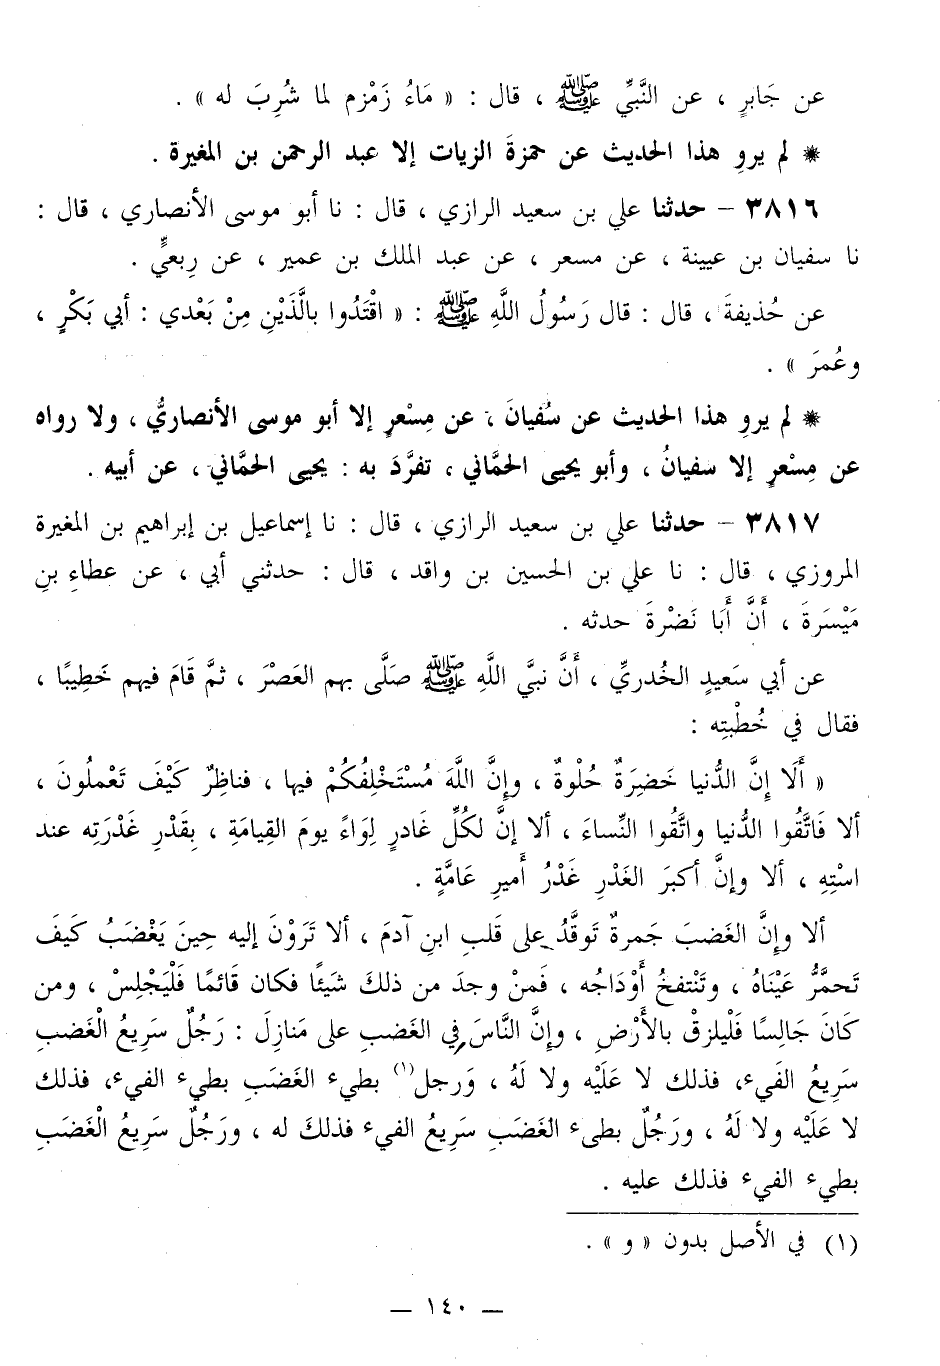 عن جَابرٍ ، عن النَّبيِّ ﷺ ، قال : « مَاءُ زَمْزم لما شُرِبَ له » .
* لم يروِ هذا الحديث عن حمزةَ الزيات إلا عبد الرحمن بن المغيرة .
٣٨١٦ – حدثنا علي بن سعيد الرازي ، قال : نا أبو موسى الأنصاري ، قال :
نا سفيان بن عيينة ، عن مسعر ، عن عبد الملك بن عمير ، عن رِبعيٍّ .
عن حُذيفةَ ، قال : قال رَسُولُ اللَّهِ ﷺ : « اقْتَدُوا بالَّذَيْنِ مِنْ بَعْدي : أبي بَكْرٍ ،
وعُمرَ » .
* لم يروِ هذا الحديث عن سُفيانَ ، عن مِسْعرٍ إلا أبو موسى الأنصاريُّ ، ولا رواه
عن مِسْعرٍ إلا سفيانُ ، وأبو يحيى الحمَّاني ، تفرَّدَ به : يحيى الحمَّاني ، عن أبيه .
٣٨١٧ – حدثنا علي بن سعيد الرازي ، قال : نا إسماعيل بن إبراهيم بن المغيرة
المروزي ، قال : نا علي بن الحسين بن واقد ، قال : حدثني أبي ، عن عطاءِ بنِ
مَيْسَرةَ ، أَنَّ أَبَا نَضْرةَ حدثه .
عن أبي سَعيدٍ الخُدريِّ ، أَنَّ نبيَّ اللَّهِ ﷺ صَلَّى بهم العَصْرَ ، ثمَّ قَامَ فيهم خَطِيبًا ،
فقال في خُطْبتِه :
« أَلَا إِنَّ الدُّنيا خَضِرَةٌ حُلْوةٌ ، وإِنَّ اللَّهَ مُسْتَخْلِفُكُمْ فيها ، فناظِرٌ كَيْفَ تَعْملُونَ ،
ألا فَاتَّقُوا الدُّنيا واتَّقُوا النِّساءَ ، ألا إنَّ لكُلِّ غَادرٍ لِوَاءً يومَ القِيامَةِ ، بِقدْرِ غَدْرَتِه عند
اسْتِهِ ، ألا وإنَّ أكبرَ الغَدْرِ غَدْرُ أَميرِ عَامَّةٍ .
ألا وإِنَّ الغَضبَ جَمرةٌ تَوقَّدُ على قَلبِ ابنِ آدمَ ، ألا تَرَوْنَ إليه حِينَ يَغْضَبُ كَيفَ
تَحمَّرُّ عَيْنَاهُ ، وتَنْتفخُ أَوْدَاجُه ، فَمنْ وجدَ من ذلكَ شَيئًا فكان قَائمًا فَلْيَجْلِسْ ، ومن
كَانَ جَالِسًا فَلْيلزقْ بالأَرْضِ ، وإِنَّ النَّاسَ في الغَضبِ على مَنازِلَ : رَجُلٌ سَرِيعُ الْغَضبِ
سَرِيعُ الفَيءِ، فذلك لا عَلَيْه ولا لَهُ ، وَرجل(١) بطيء الغَضَبِ بطيء الفيءِ، فذلك
لا عَلَيْه ولا لَهُ ، ورَجُلٌ بطىء الغَضَبِ سَرِيعُ الفيء فذلكَ له ، ورَجُلٌ سَرِيعُ الْغَضَبِ
بطيء الفيء فذلك عليه .
(١) في الأصل بدون « و » .
— ١٤٠ —